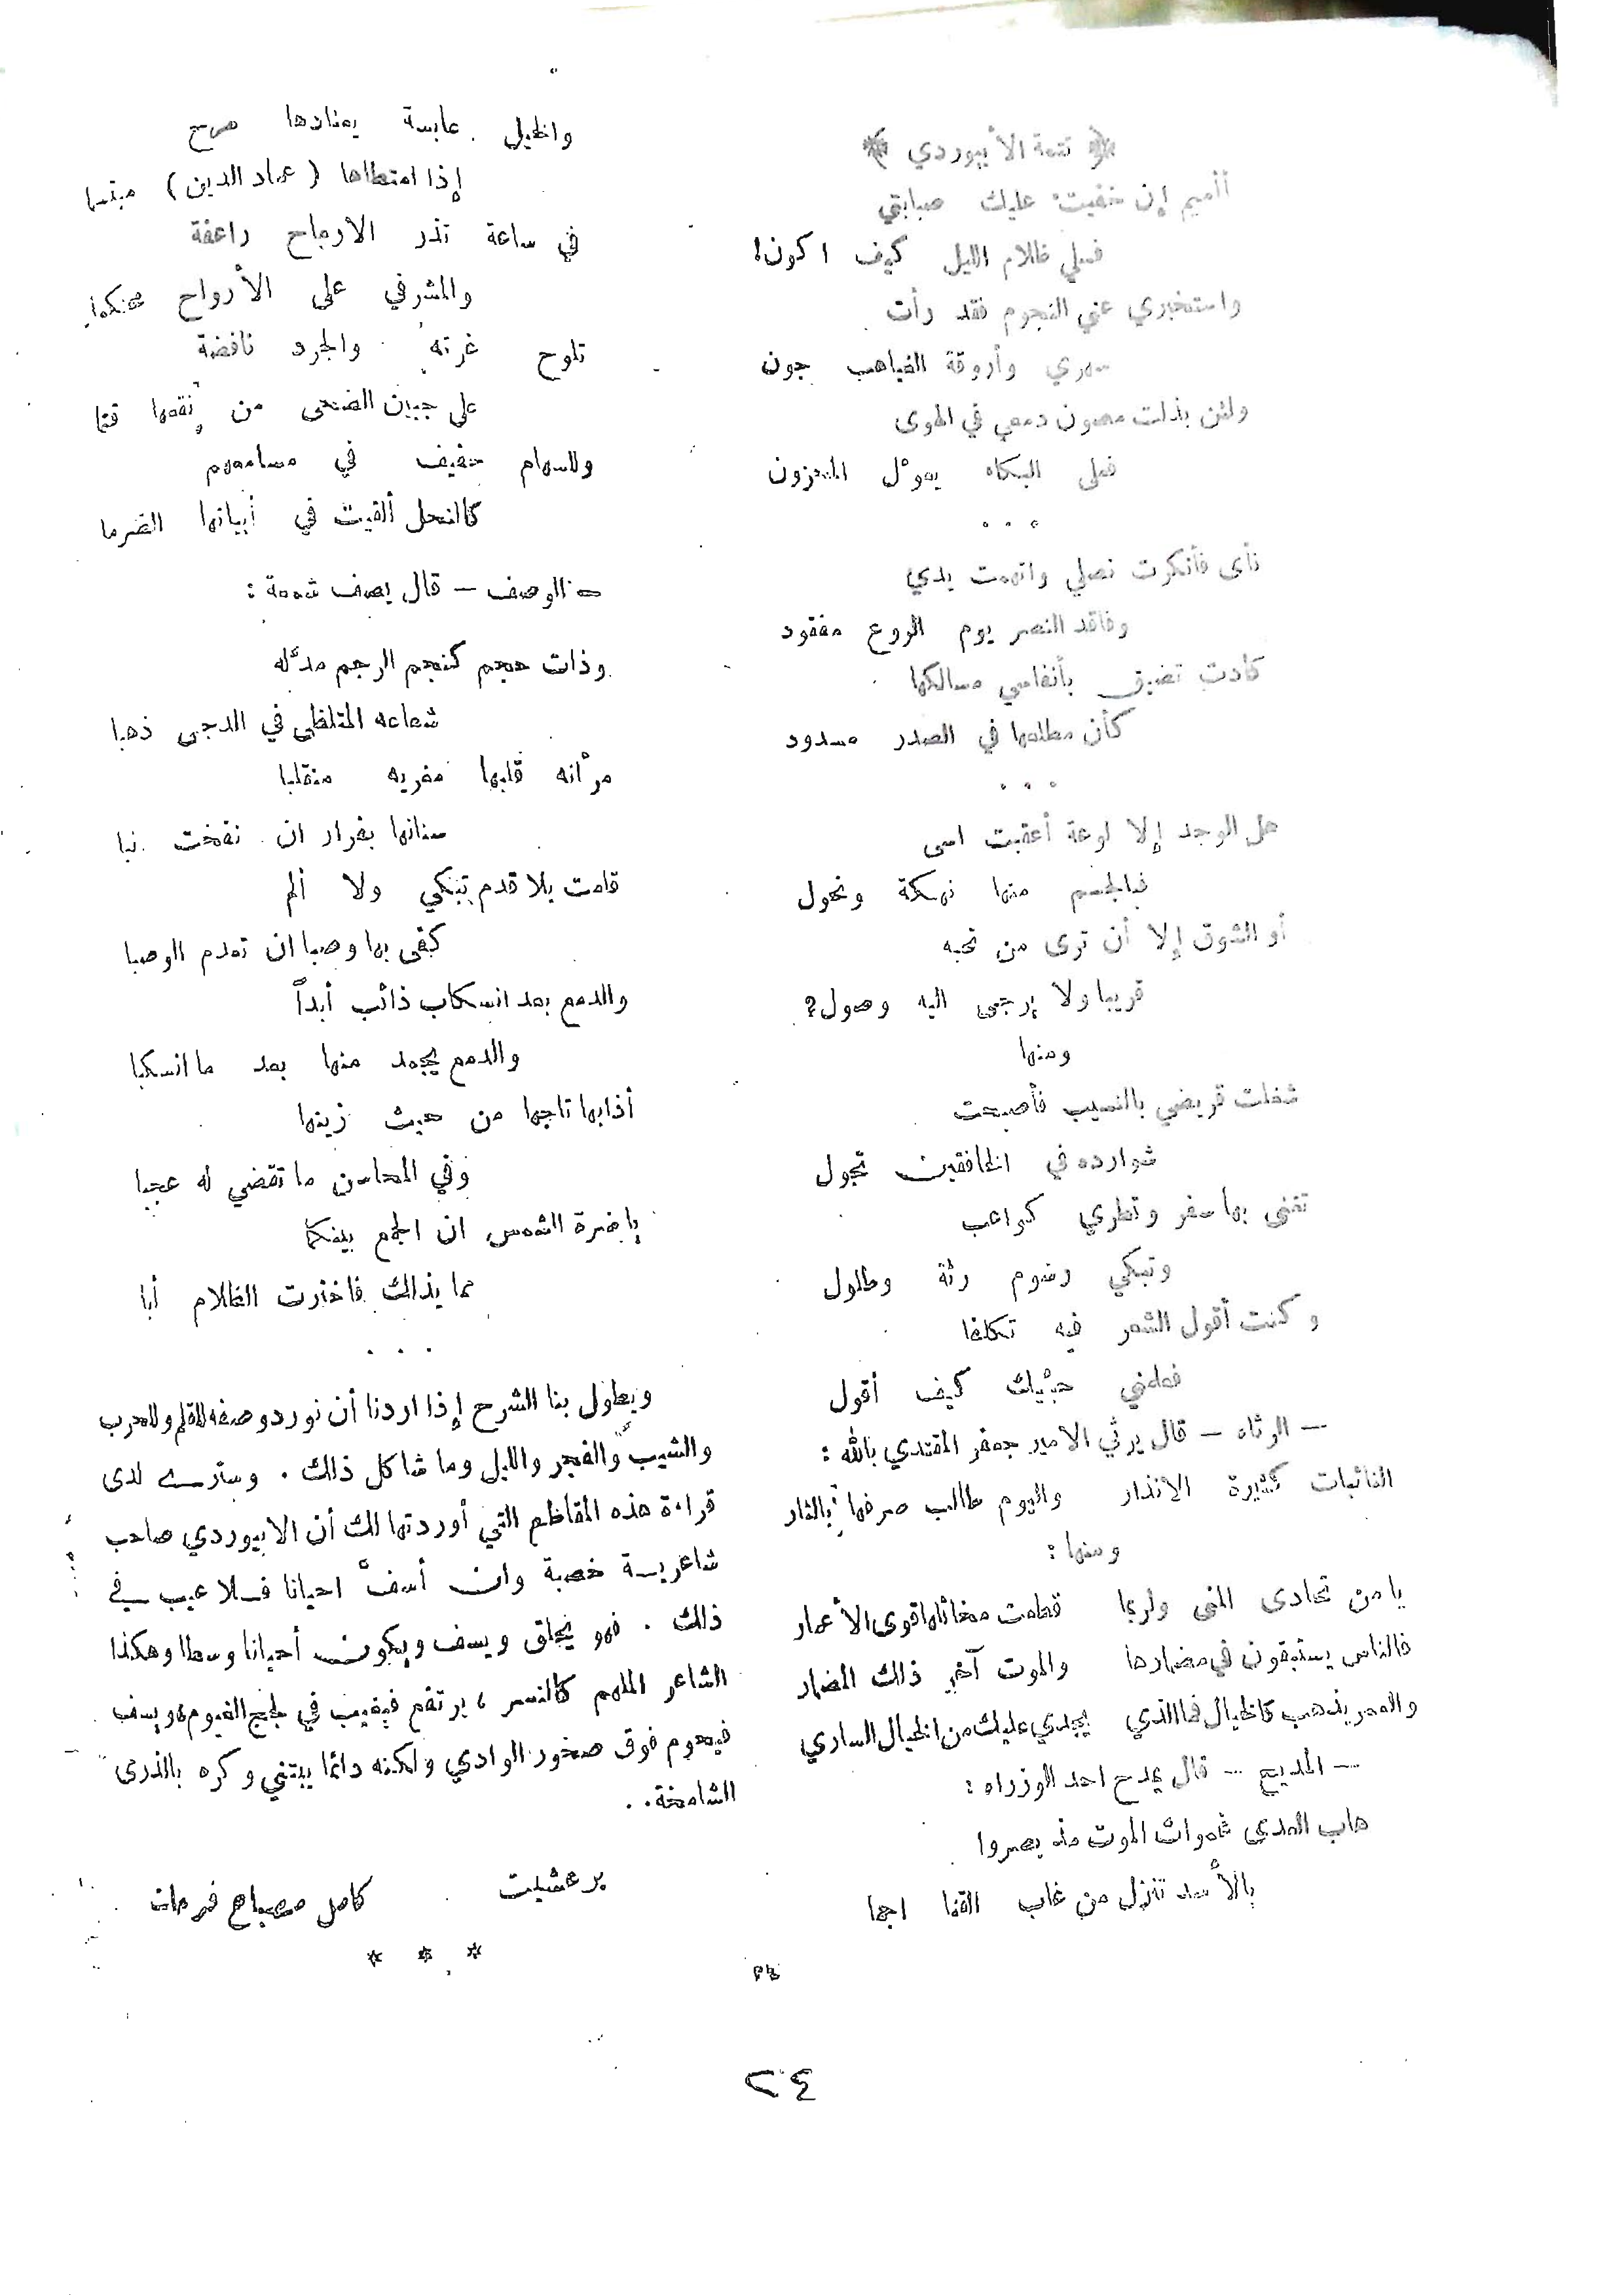 ﴿ تتمة الأبيوردي ﴾
أأميم إن خفيت عليك صبابتي
فسلي ظلام الليل كيف اكون!
واستخبري عني النجوم فقد رأت
سهري وأروقة الغياهب جون
ولئن بذلت مصون دمعي في الهوى
فعلى البكاء يعوّل المحزون
٠ ٠ ٠
نأى فأنكرت نصلي واتهمت يدي
وفاقد النصر يوم الروع مفقود
كادت تضيق بأنفاسي مسالكها
كأن مطلعها في الصدر مسدود
٠ ٠ ٠
هل الوجد إلا لوعة أعقبت اسى
فبالجسم منها نهكة ونحول
أو الشوق إلا أن ترى من تحبه
قريبا ولا يرجى اليه وصول؟
ومنها
شغلت قريضي بالنسيب فأصبحت
شوارده في الخافقين تجول
تغنى بها سفر وتطري كواعب
وتبكي رسوم رثة وطلول
وكنت أقول الشعر فيه تكلفا
فعلمني حبّيك كيف أقول
— الرثاء — قال يرثي الامير جعفر المقتدي بالله :
النائبات كثيرة الانذار واليوم طالب صرفها بالثار
ومنها :
يا من تخادى المنى ولربما قطعت مخائلها قوى الأعمار
فالناس يستبقون في مضمارها والموت آخر ذلك المضمار
والعمر يذهب كالخيال فما الذي يجدي عليك من الخيال الساري
— المديح — قال يمدح احد الوزراء :
هاب العدى غمرات الموت مذ بصروا
بالأسد تنزل من غاب القنا اجما
والخيل عابسة يعتادها مرح
إذا امتطاها (عماد الدين) مبتسما
في ساعة تذر الارماح راعفة
والمشرفي على الأرواح محتكما
تلوح غرته والجرد نافضة
على جبين الضحى من نقعها قتما
وللسهام حفيف في مسامعهم
كالنحل ألقيت في أبياتها الضرما
— الوصف — قال يصف شمعة :
وذات حجم كنجم الرجم مدّ له
شعاعه المتلظي في الدجى ذهبا
مرّانه قلبها مفريه منقلبا
سنانها بغرار ان نفخت نبا
قامت بلا قدم تبكي ولا ألم
كفى بها وصبا ان تعدم الوصبا
والدمع بعد انسكاب ذائب أبداً
والدمع يجمد منها بعد ما انسكبا
أذابها تاجها من حيث زينها
وفي المحاسن ما تقضي له عجبا
يا ضرة الشمس ان الجمع بينكما
مما يذالك فاخترت الظلام أبا
٠ ٠ ٠
ويطول بنا الشرح إذا اردنا أن نورد وصفه للقلم وللحرب
والشيب والفجر والليل وما شاكل ذلك . وسترى لدى
قراءة هذه المقاطع التي أوردتها لك أن الابيوردي صاحب
شاعرية خصبة وان أسفّ احيانا فلا عيب في
ذلك . فهو يحلق ويسف ويكون أحيانا وسطا وهكذا
الشاعر الملهم كالنسر ، يرتفع فيغيب في لجج الغيوم، ويسف
فيحوم فوق صخور الوادي ولكنه دائما يبتني وكره بالذرى
الشامخة . .
برعشيت كامل مصباح فرحات
* * *
٢٤
٢٤